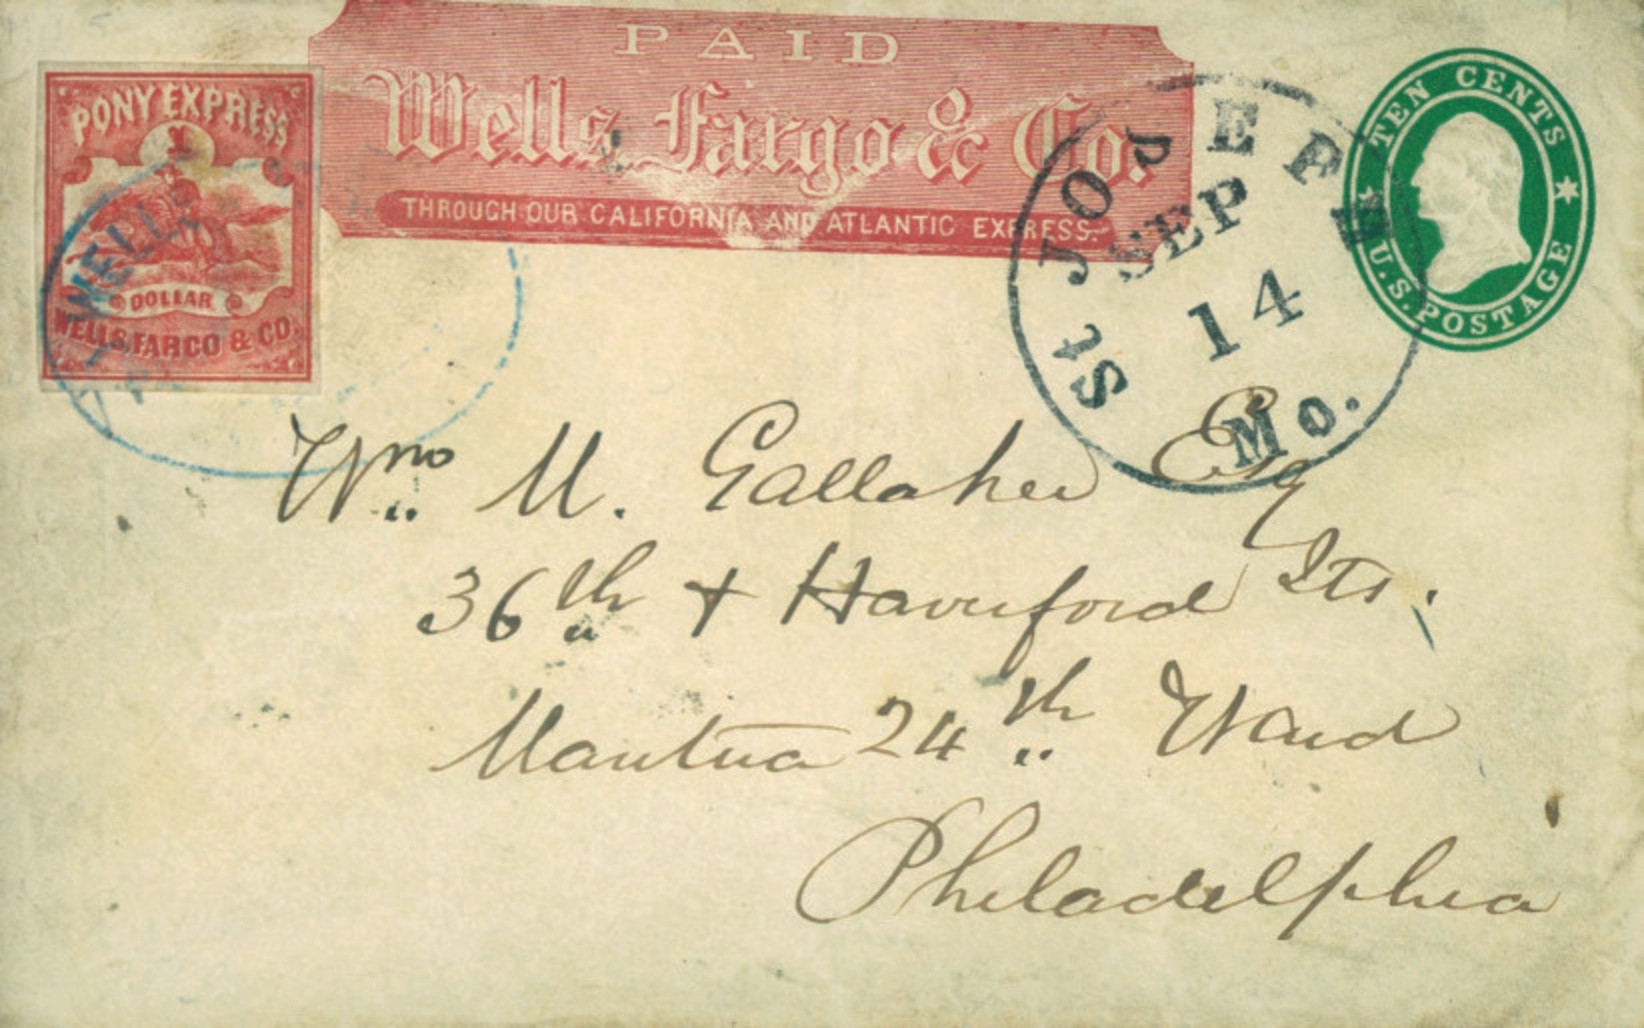 PAID
Wells, Fargo & Co.
THROUGH OUR CALIFORNIA AND ATLANTIC EXPRESS.
PONY EXPRESS
DOLLAR
WELLS, FARGO & CO.
WELLS
St JOSEPH
SEP
14
Mo.
TEN CENTS
U.S. POSTAGE
Wm M. Gallaher Esq
36th + Haverford Sts.
Mantua 24th Ward
Philadelphia